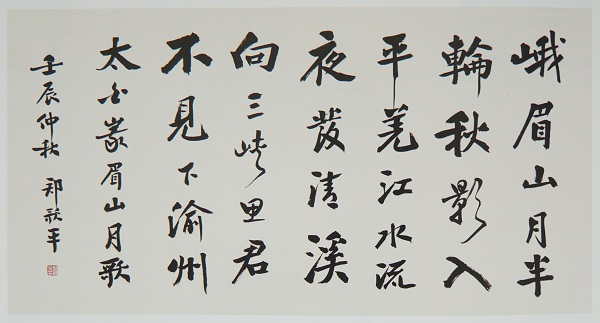 峨眉山月半
輪秋影入
平羌江水流
夜發清溪
向三峡思君
不見下渝州
太白峩眉山月歌
壬辰仲秋 郑歌平